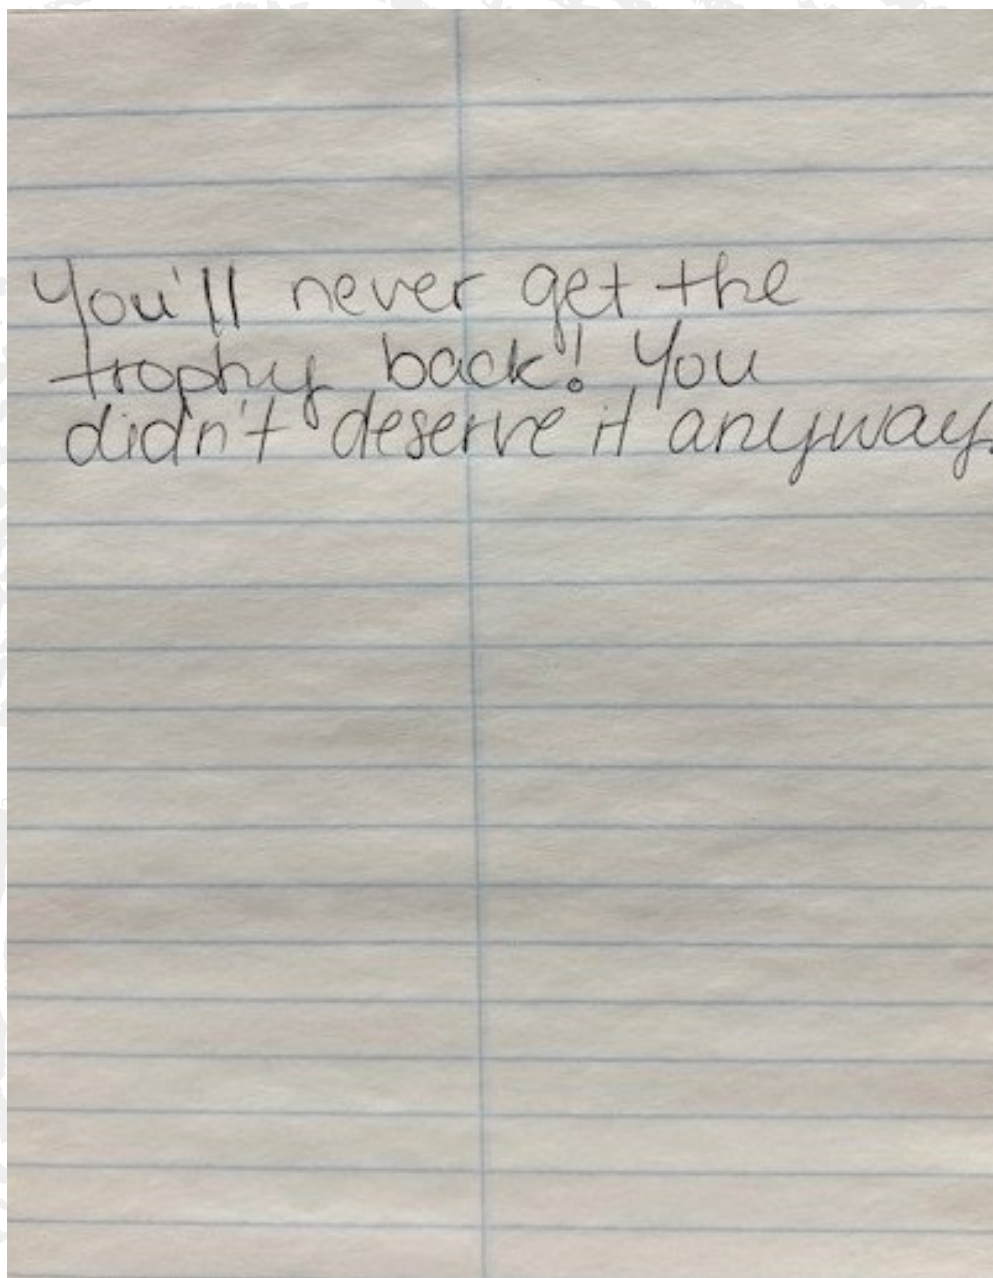 You'll never get the
trophy back! You
didn't deserve it anyway.